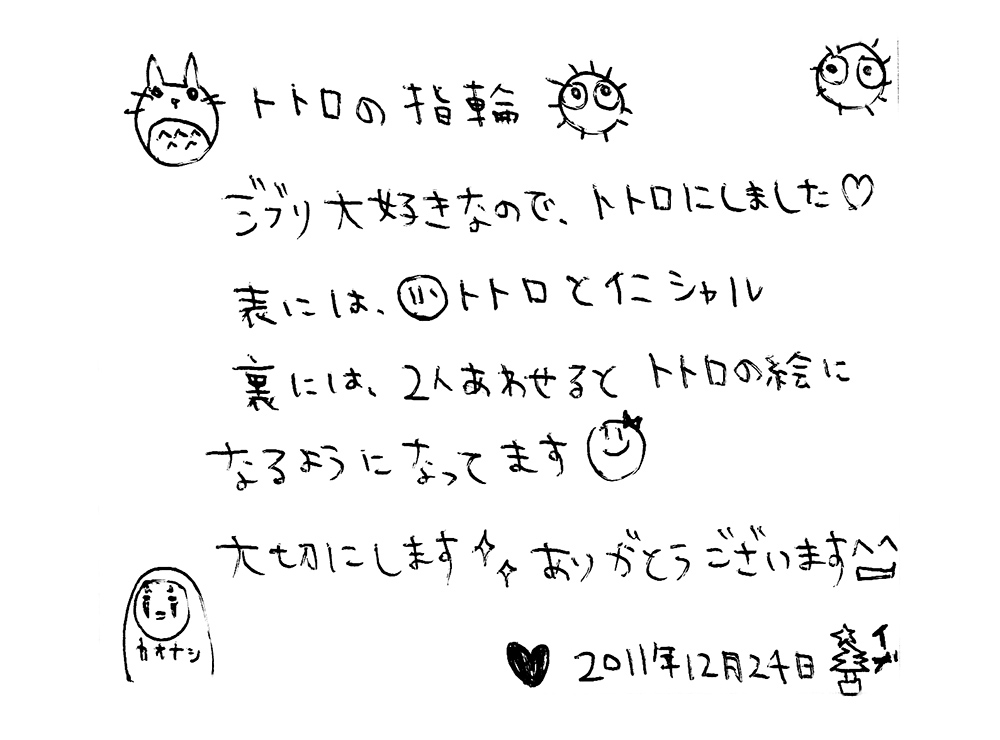 トトロの指輪
ジブリ大好きなので、トトロにしました♡
表には、トトロとイニシャル
裏には、2人あわせるとトトロの絵に
なるようになってます
大切にします ありがとうございます^^
カオナシ
2011年12月24日 イブ